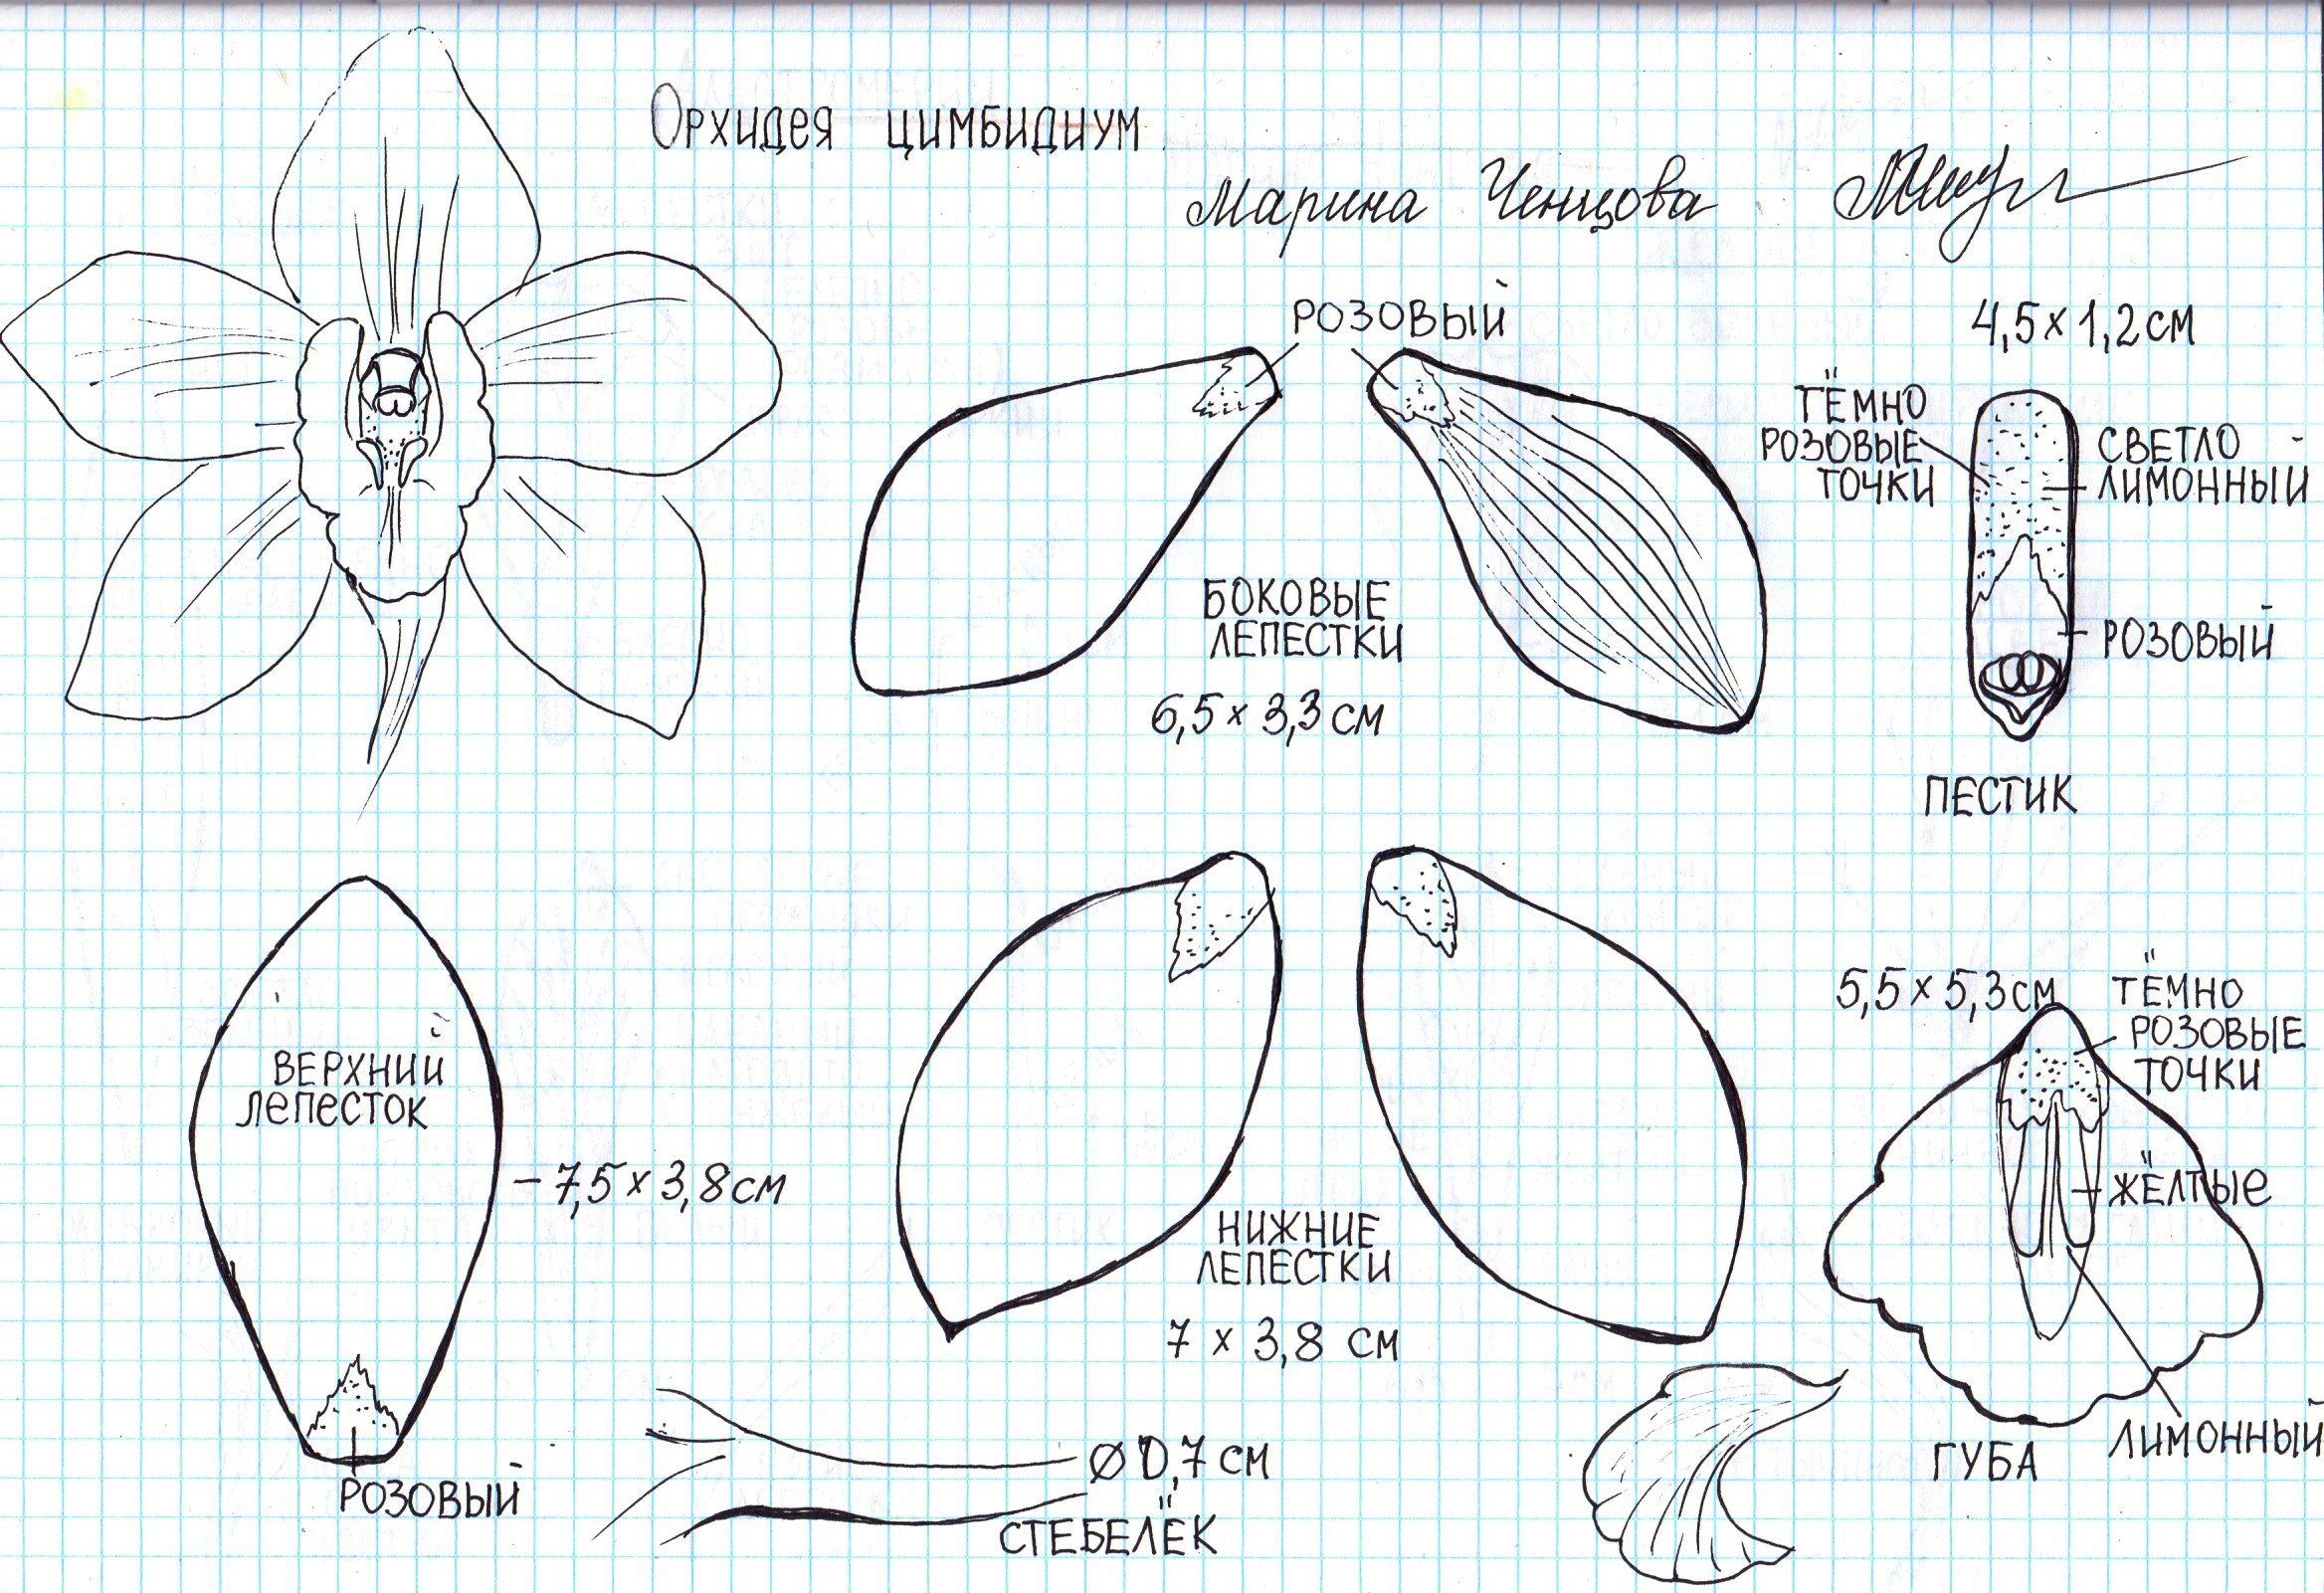 Орхидея цимбидиум
Марина Ченцова
розовый
4,5 х 1,2 см
тёмно
розовые
точки
светло
лимонный
розовый
пестик
боковые
лепестки
6,5 х 3,3 см
верхний
лепесток
– 7,5 х 3,8 см
розовый
нижние
лепестки
7 х 3,8 см
5,5 х 5,3 см
тёмно
розовые
точки
жёлтые
лимонный
губа
Ø 0,7 см
стебелёк